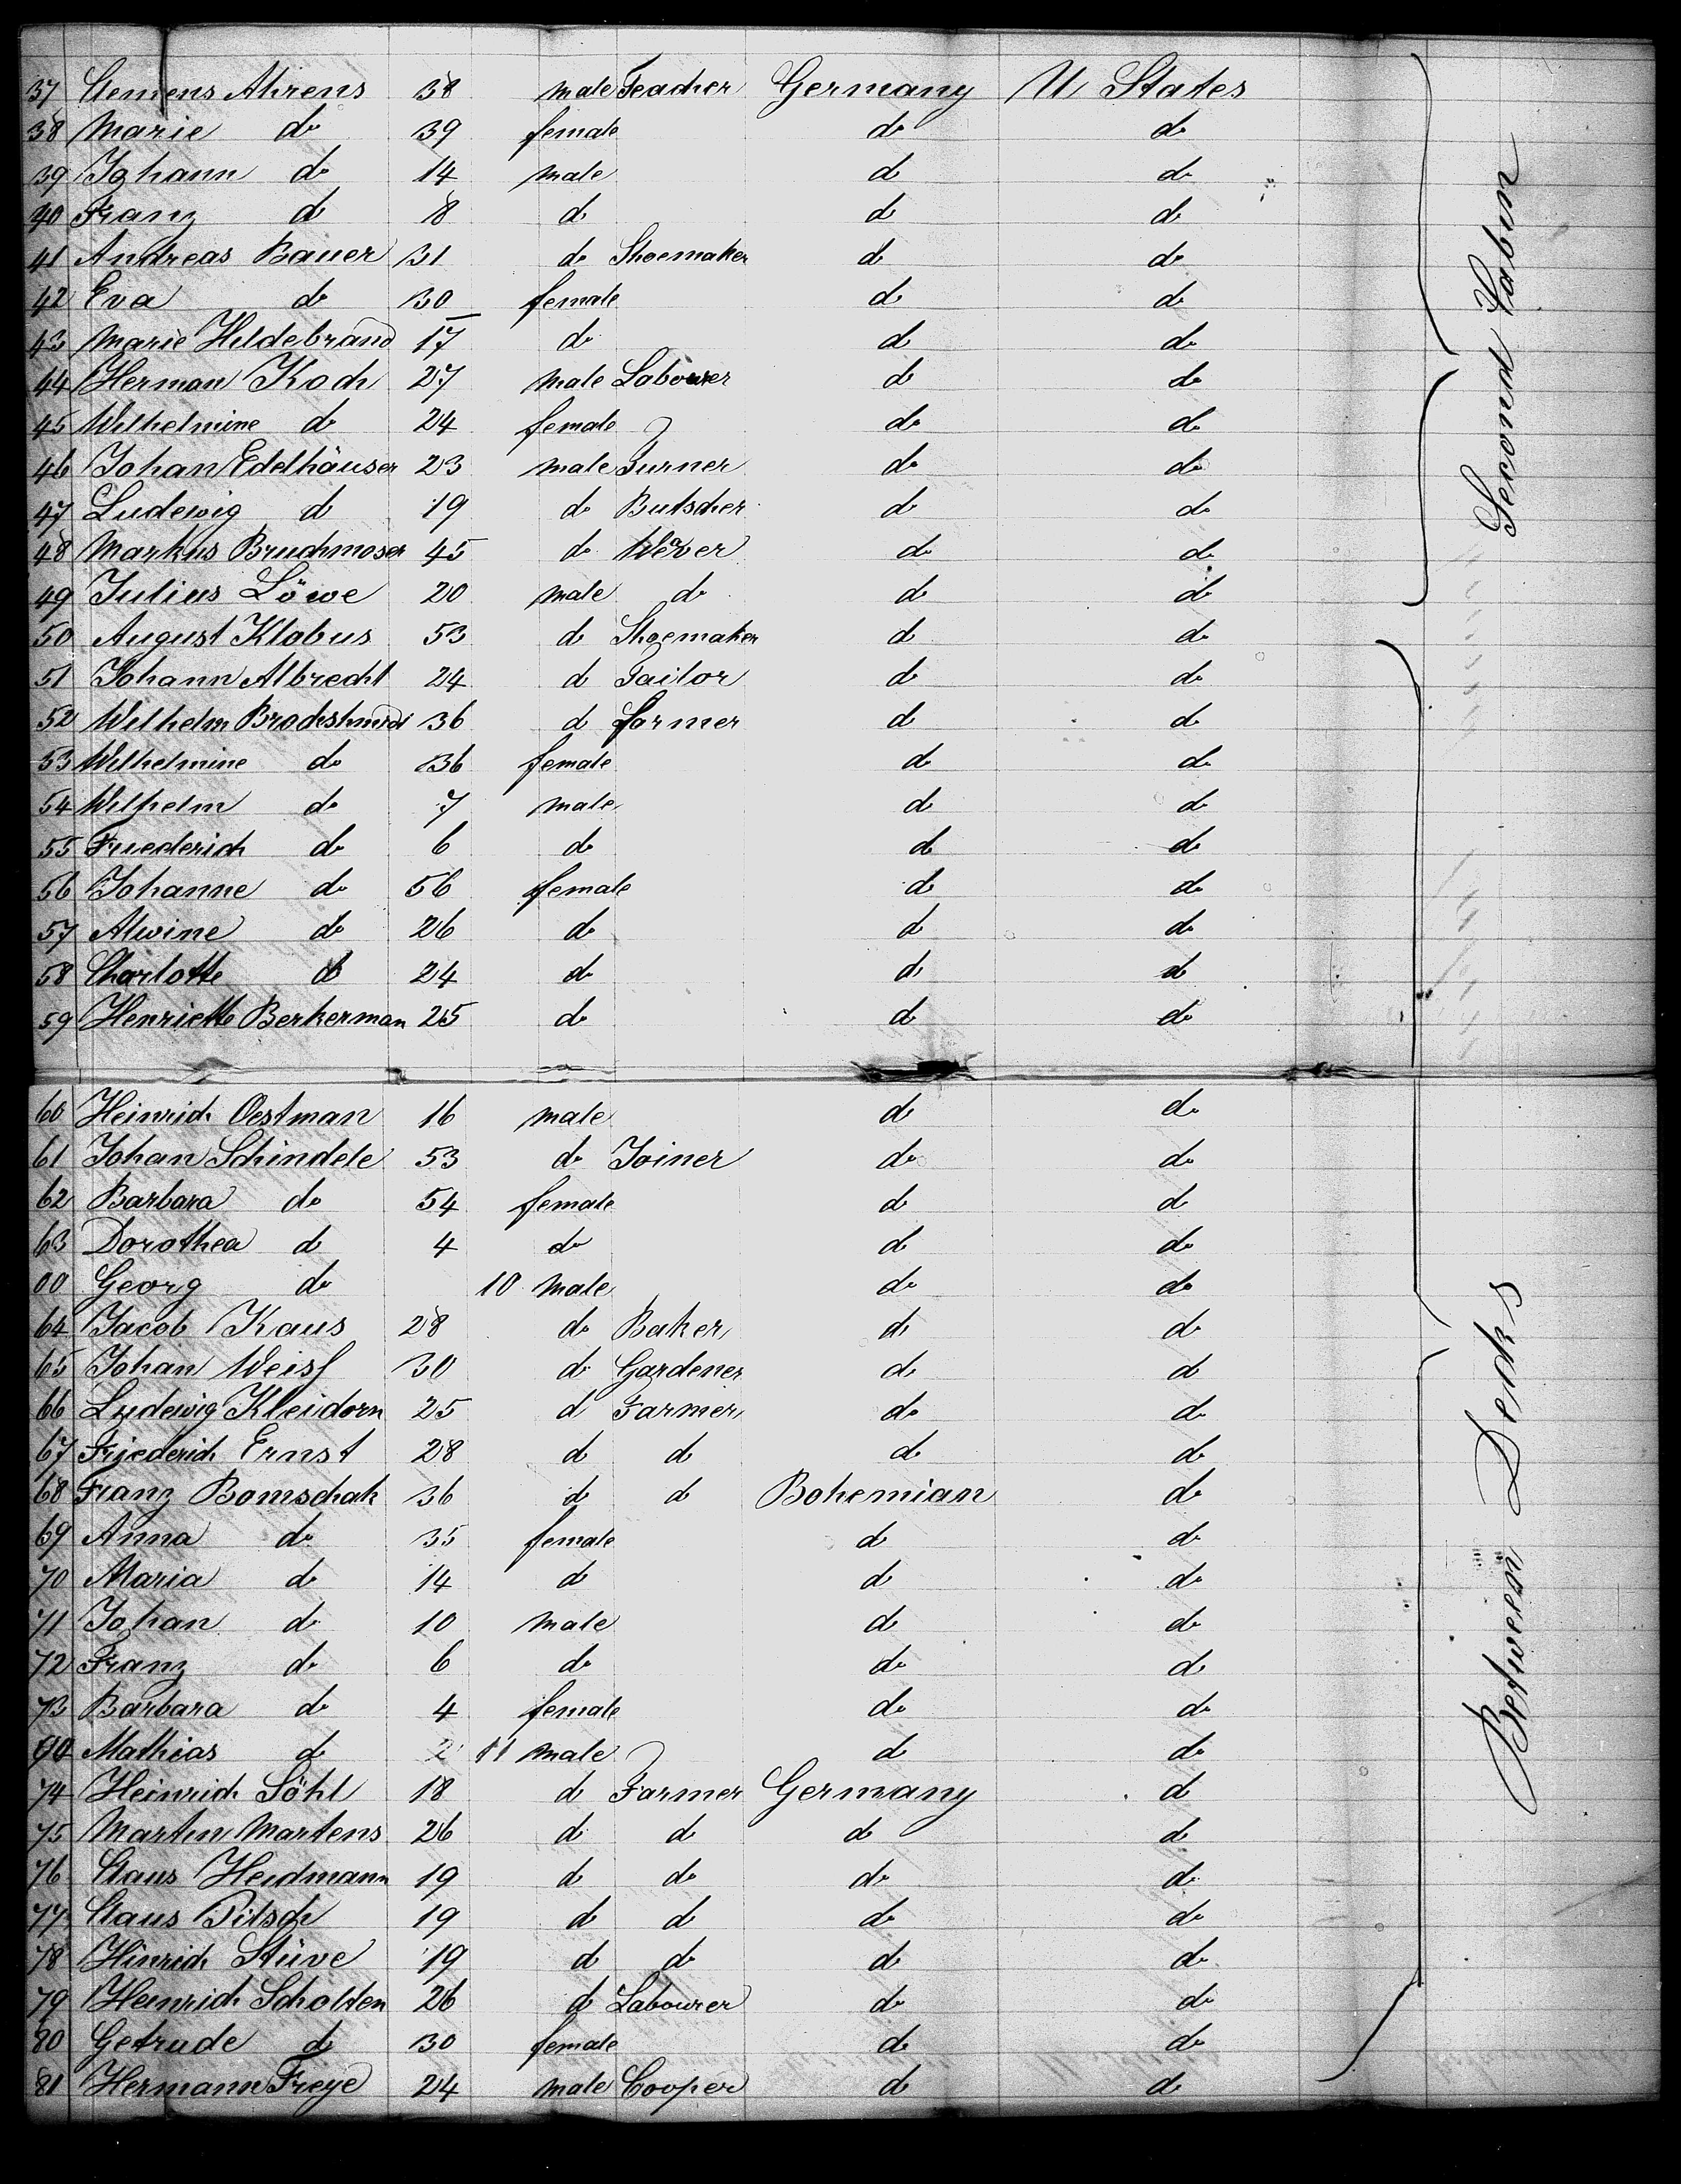 37 Clemens Ahrens 38 male Teacher Germany U States
38 Marie do 39 female do do
39 Johann do 14 male d do
40 Franz d 8 d d d
41 Andreas Bauer 31 do Shoemaker d do
42 Eva do 30 female do do
43 Marie Hildebrand 17 do d do
44 Herman Koch 27 male Labourer d do
45 Wilhelmine do 24 female do do
46 Johan Edelhäuser 23 male Turner do do
47 Ludewig d 19 do Butscher d do
48 Markus Bruchmoser 45 do Wever do do
49 Julius Löwe 20 male do do d
50 August Klobus 53 d Shoemaker d do
51 Johann Albrecht 24 d Tailor d do
52 Wilhelm 36 d farmer d d
53 Wilhelmine do 36 female d do
54 Wilhelm do 7 male d d
55 Friederich do 6 do d do
56 Johanne do 56 female d do
57 Alwine do 26 do d do
58 Charlotte d 24 d d d
59 Henriette Berkerman 25 do d do
60 Heinrich Oestman 16 male d do
61 Johan Schindele 53 do Joiner do do
62 Barbara do 54 female d d
63 Dorothea d 4 do d do
00 Georg do 10 male do do
64 Jacob Kaus 28 do Baker d d
65 Johan Weiss 30 do Gardener d d
66 Ludewig Kleidorn 25 d Farmer do do
67 Friederich Ernst 28 d d d d
68 Franz Bomschak 36 d d Bohemian do
69 Anna do 35 female d do
70 Maria d 14 d d do
71 Johan do 10 male d do
72 Franz do 6 do do d
73 Barbara do 4 female do do
00 Mathias d 11 male d do
74 Heinrich Söhl 18 d Farmer Germany d
75 Martin Martens 26 d d d d
76 Claus Heidmann 19 d do do do
77 Claus Pitsch 19 d d do do
78 Hinrich Stüve 19 d do do do
79 Heinrich Scholten 26 d Labourer do do
80 Getrude d 30 female do do
81 Hermann Freye 24 male Cooper d d
Second Cabin
Between Decks